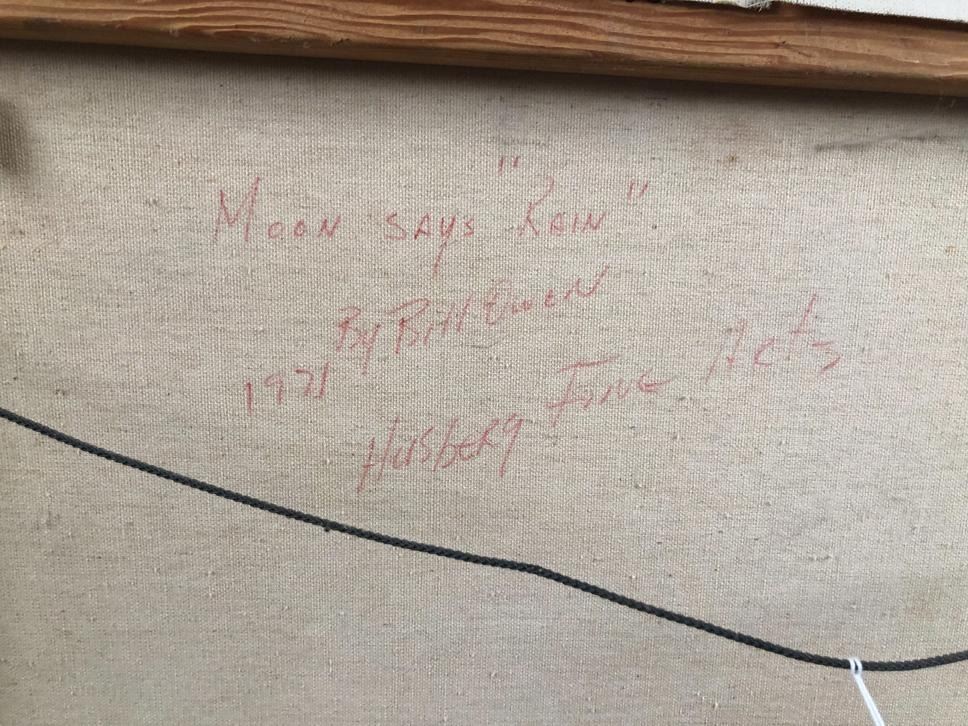 Moon says "Rain"
By Bill Owen
1971
Husberg Fine Arts